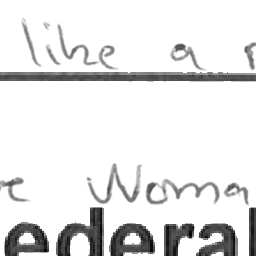 like a
Woma
ederal